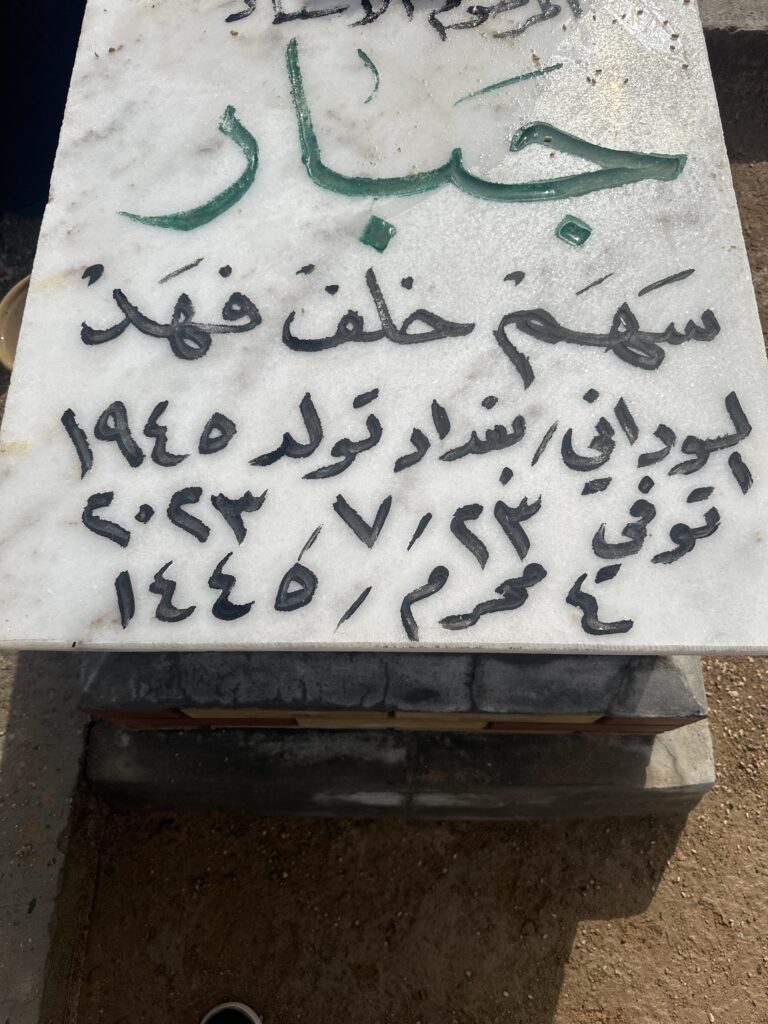 المرحوم الاستاذ
جَبّار
سَهَمْ خلفْ فهَدْ
السوداني/ بغداد تولد ١٩٤٥
توفي ٢٣/ ٧/ ٢٠٢٣
٤ محرم/ ١٤٤٥